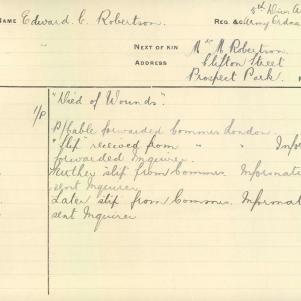 5th Divn A
NAME Edward. C. Robertson. REG. &c Army Ordna
NEXT OF KIN Mrs M. Robertson.
ADDRESS Clifton Street
Prospect Park.
"Died of Wounds".
P/bable forwarded Commrs London.
"Slip" received from " " Infor
forwarded Inquirer.
Further slip from Commrs. Informati
sent Inquirer
Later slip from Commrs. Informat
sent Inquirer